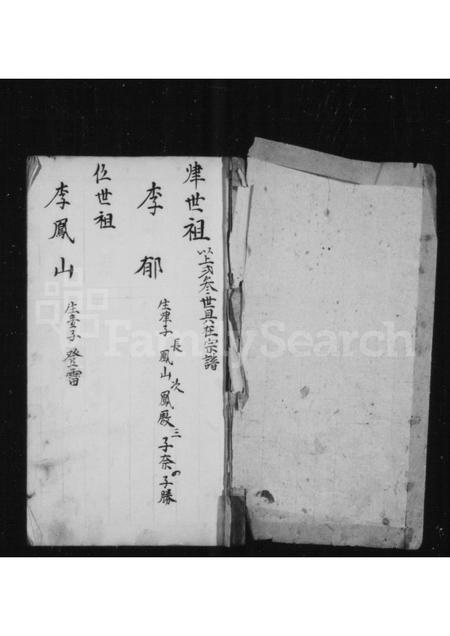 肂世祖
以上弍叁世具在宗譜
李郁
生肂子 長鳳山 次鳳殿 三子奈 四子勝
伍世祖
李鳳山
生壹子 登雷
FamilySearch